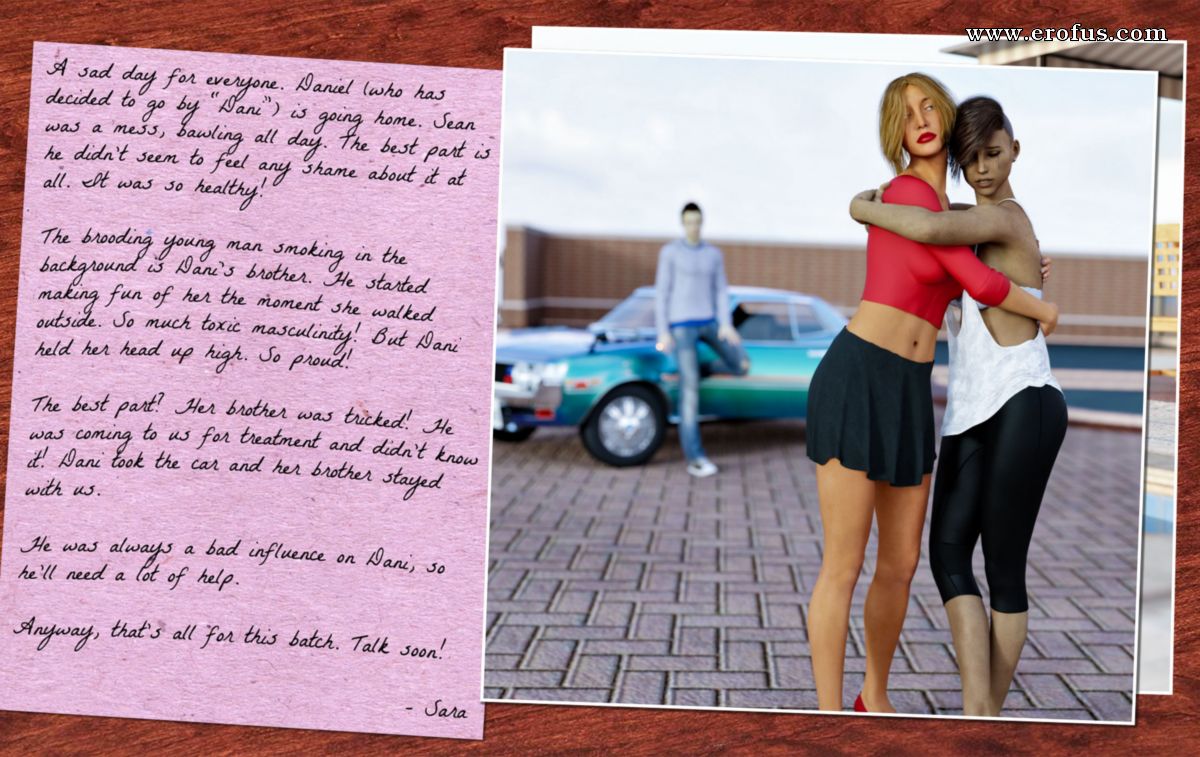 www.erofus.com
A sad day for everyone. Daniel (who has
decided to go by "Dani") is going home. Sean
was a mess, bawling all day. The best part is
he didn't seem to feel any shame about it at
all. It was so healthy!
The brooding young man smoking in the
background is Dani's brother. He started
making fun of her the moment she walked
outside. So much toxic masculinity! But Dani
held her head up high. So proud!
The best part? Her brother was tricked! He
was coming to us for treatment and didn't know
it! Dani took the car and her brother stayed
with us.
He was always a bad influence on Dani, so
he'll need a lot of help.
Anyway, that's all for this batch. Talk soon!
- Sara